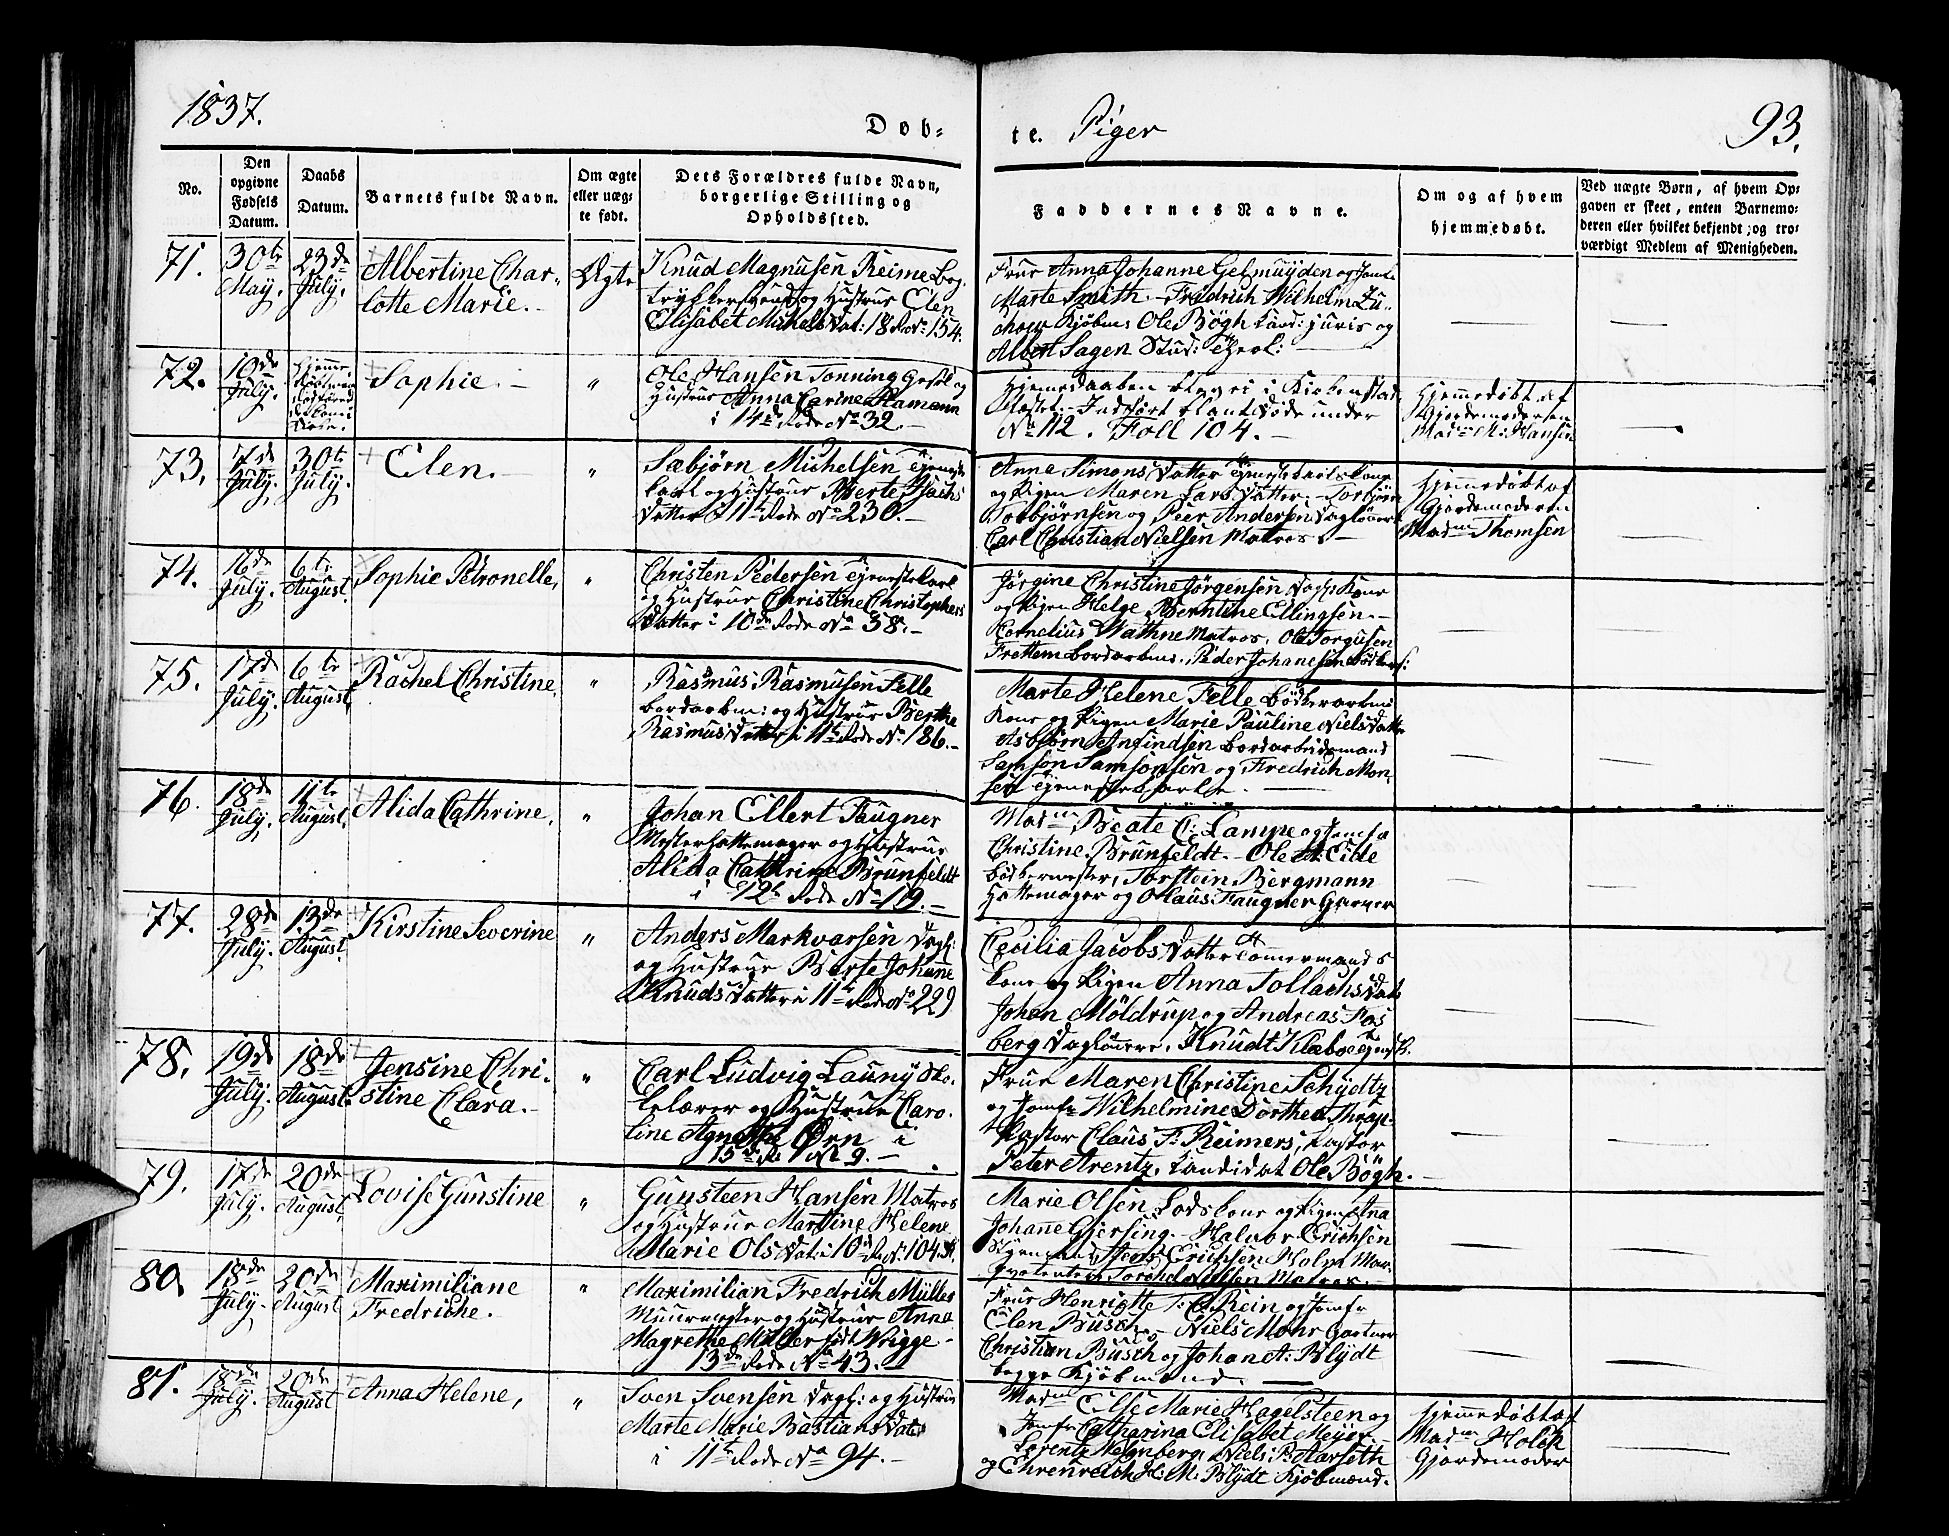 1837.
Døb-
te. Piger
93.
No.
Den opgivne Fødsels Datum.
Daabs Datum.
Barnets fulde Navn.
Om ægte eller uægte født.
Dets Forældres fulde Navn, borgerlige Stilling og Opholdssted.
Faddernes Navne.
Om og af hvem hjemmedøbt.
Ved uægte Børn, af hvem Opgaven er skeet, enten Barnemoderen eller hvilket bekjendt, og troværdigt Medlem af Menigheden.
71.
30te May.
23de July.
Albertine Char-
lotte Marie.
Ægte
Knud Magnusen Reime Bog-
trykkersvend og Hustrue Elen
Elisabet Michelsdat: 18 Rode No 154.
Frue Anna Johanne Gelmuyden og Jomfr
Marte Smith. Fredrich Wilhelm
Kjøbm: Ole Bøgh Cand: juris og
Albert Sagen Stud: Theol:
72.
10de July.
Sophie.
"
Ole Hansen Tonning
Hustrue Anna Carine Hamann
i 14de Rode No 32.
Hjemedaaben
Indført blant Døde under
No 112. Foll 104.
Hjemmedøbt af
Gjordemoderen
Madme M: Hansen
73.
7de July.
30te July.
Elen.
"
Sæbjørn Michelsen Tjeneste-
karl og Hustrue Berte Isachs
Datter i 11te Rode No 230.
Anna Simons Datter Tjenestekarls Kone
og Pigen Maren Lars Datter. Torbjørn
Torbjørnsen og Peer Andersen Dagløner
Carl Christian Nielsen Matros.
Hjemmedøbt af
Gjordemoderen
Madme Thomsen
74.
16de July.
6te August.
Sophie Petronelle,
"
Christen Pedersen Tjenestekarl
og Hustrue Christine Christophers
Datter i 10de Rode No 38.
Jørgine Christine Jørgensen Dagl: Kone
og Pigen Helge Berntine Ellingsen.
Cornelius Wathne Matros. Ole Torgusen
Frettem bordarbm:. Peder Johanesen Bødkers:
75.
17de July.
6te August.
Rachel Christine.
"
Rasmus Rasmusen Felle
bordarbm: og Hustrue Berthe
Rasmus Datter i 11te Rode No 186.
Marte Helene Felle Bødkerarbm:
Kone og Pigen Marie Pauline Niels Datter
Asbjørn Anfindsen bordarbeidsmand
Samson Samsonsen og Fredrich Mon-
sen Tjenestekarle.
76.
18de July.
11te August.
Alida Cathrine.
"
Johan Ellert Faugner
Mesterhattemager og Hustrue
Alida Cathrine Brunfeldt
i 12te Rode No 19.
Madme Beate C: Lampe og Jomfr
Christine Brunfeldt. Ole A: Eide
bødkermester, Torstein Bergmann
Hattemager og Olaus Faugner Garver
77.
28de July.
13de August.
Kirstine Severine
"
Anders Markvarsen Dagl:
og Hustrue Berte Johanne
Knuds Datter i 11te Rode No 229
Cecilia Jacobs Datter Tømmermands
Kone og Pigen Anna Tollachs Dat:
Johan Möldrup og Andreas Fos
berg Daglønere. Knudt Klebo
78.
19de July.
18de August.
Jensine Chri-
stine Clara.
"
Carl Ludvig Launy Sko-
lelærer og Hustrue Caro-
line Agnethe Ørn i
15de R: No 9.
Frue Maren Christine Schydtz
og Jomfr Wilhelmine Dorthea Thrap-
Pastor Claus F: Reimers, Pastor
Peter Arentz, Candidat Ole Bøgh.
79.
17de July.
20de August.
Lovise Gunstine
"
Gunsteen Hansen Matros
og Hustrue Martine Helene
Marie Ols Dat: i 10de R: No: 104
Marie Olsen Lodskone og Pigen Ana
Johanne Gjersing. Halvor Erichsen
Erichsen Holm
Nielsen Matros.
80.
18de July.
20de August
Maximiliane
Fredriche.
"
Maximilian Fredrich Müller
Muurmester og Hustrue Anne
Magrethe Müller født Wrigge
13de Rode No 43.
Frue Henrigtte T: C: Rein og Jomfr
Elen Busch. Niels Mohr Gartner
Christian Busch og Johan A: Blÿdt
begge Kjøbmænd.
81.
18de July.
20de August
Anna Helene,
"
Sven Svensen Dagl: og Hustrue
Marte Marie Bastians Dat:
i 11te Rode No 94.
Madme Cilse Marie Hagelsteen og
Jomfr Catharina Elisabet Meyer
Lorentz Malmberg, Niels B: Aarseth
og Ehrenreich H: M: Blÿdt Kjøbmænd.
Hjemmedøbt af
Madme Holck
Gjordemoder